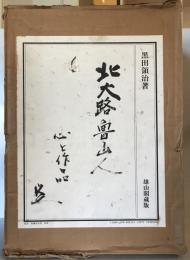 黒田領治著
北大路魯山人
心と作品
雄山閣蔵版